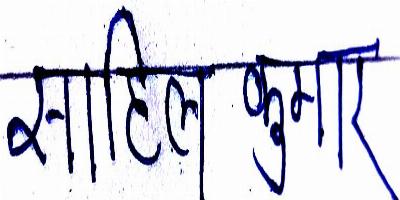 साहिल कुमार